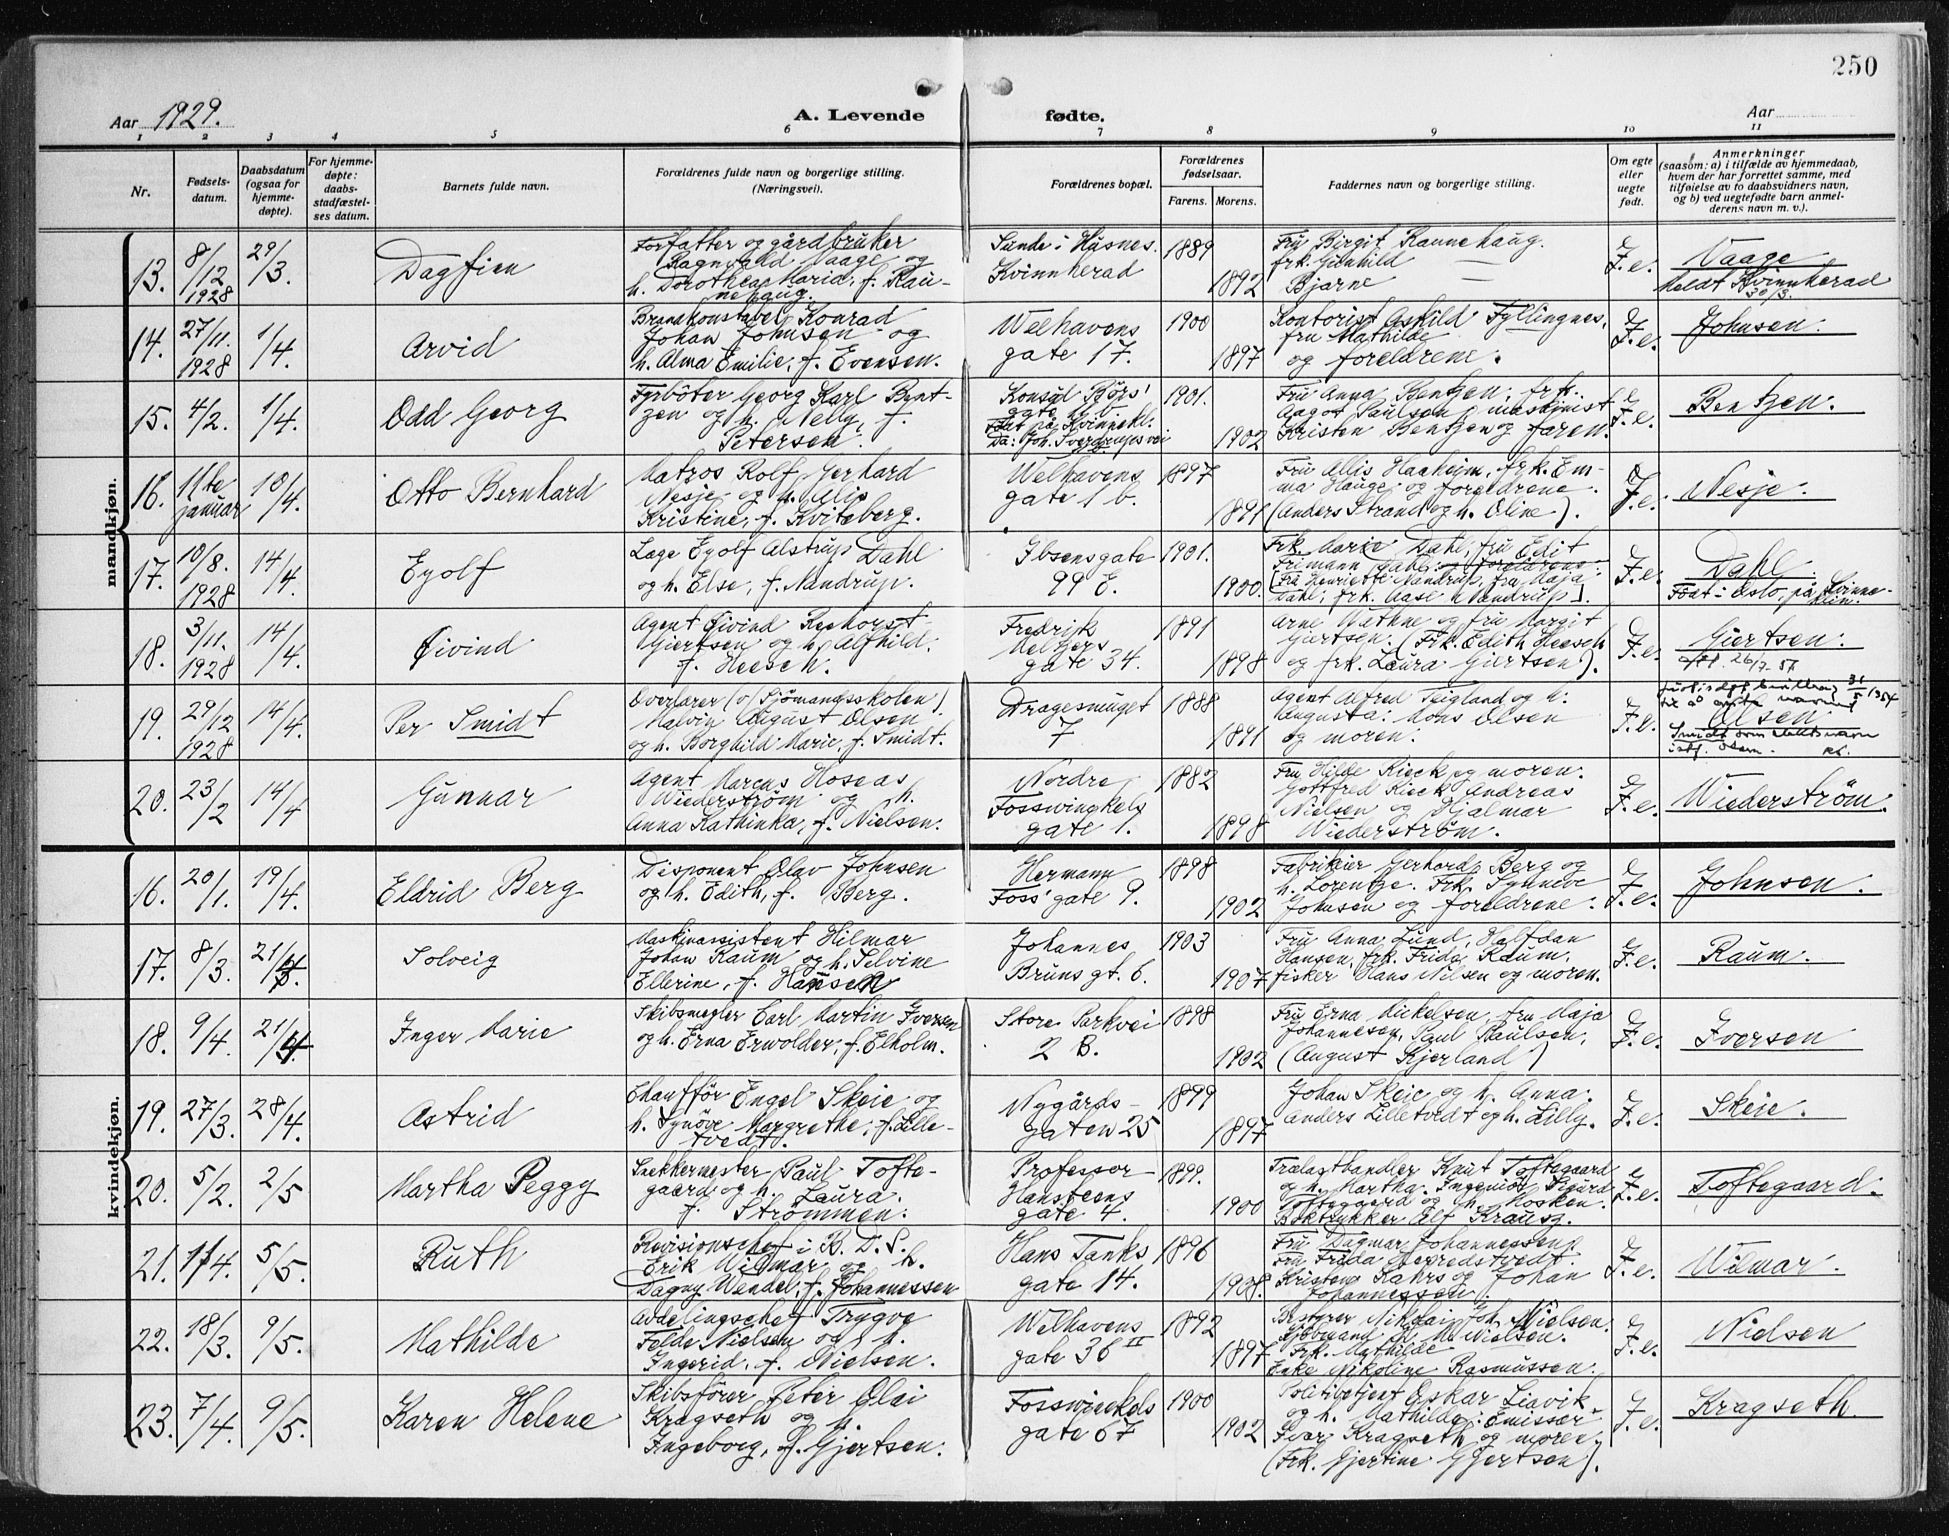 250
Aar 1929.
A. Levende
fødte.
Aar
1 2 3 4 5 6 7 8 9 10 11
Nr.
Fødsels-
datum.
Daabsdatum
(ogsaa for
hjemme-
døpte).
For hjemme-
døpte:
daabs-
stadfæstel-
ses datum.
Barnets fulde navn.
Forældrenes fulde navn og borgerlige stilling.
(Næringsvei).
Forældrenes bopæl.
Forældrenes
fødselsaar.
Farens. Morens.
Faddernes navn og borgerlige stilling.
Om egte
eller
uegte
født.
Anmerkninger
(saasom: a) i tilfælde av hjemmedaab,
hvem der har forrettet samme, med
tilføielse av to daabsvidners navn,
og b) ved uegtefødte barn anmel-
derens navn m. v.).
mandkjøn.
13.
8/12
1928
29/3.
Dagfinn
Forfatter og gårdbruker
Ragnvald Vaage og
h. Dorothea Maria, f. Rau-
nehaug.
Sunde i Husnes.
Kvinnherad
1889
1892
Fru Birgit Raunehaug.
frk. Gunhild —
Bjarne —
F. e.
Vaage
Meldt Kvinnherad
30/3.
14.
27/11.
1928
1/4.
Arvid
Brandkonstabel Konrad
Johan Johnsen og
h. Alma Emilie, f. Evensen.
Welhavens
gate 17.
1900
1897
Kontorist Askild Fyllingnes,
fru Mathilde
og foreldrene.
F. e.
Johnsen.
15.
4/2.
1/4.
Odd Georg
Fyrbøter Georg Karl Bent-
zen og h. Nelly, f.
Petersen.
Konsul Børs'
gate
Født på Kvinnekl.
Da: Joh. Sverdrupsvei
1901.
1902
Fru Anna Bentzen, frk.
Aagot Paulsen, maskinist
Kristen Bentzen og faren.
F. e.
Bentzen.
16.
11te
januar
10/4.
Otto Bernhard
Matros Rolf Gerhard
Nesje og h. Alis
Kristine, f. Kviteberg.
Welhavens
gate 1 b.
1897
1891
Fru Allis Haaheim, frk. Em-
ma Hauge og foreldrene.
(Anders Strand og h. Oline).
F. e.
Nesje.
17.
10/8.
1928
14/4.
Eyolf
Læge Eyolf Alstrup Dahl
og h. Else, f. Nandrup.
Ibsensgate
99 E.
1901.
1900.
Frk. Marie Dahl, fru Edit
Frimann Dahl og foreldrene.
[Fru Henriette Nandrup, fru Maja
Dahl, frk. Aase Nandrup].
F. e.
Dahl.
Født i Oslo, på Kvinne-
klin.
18.
3/11.
1928
14/4.
Øivind
Agent Øivind Reehorst
Gjertsen og h. Alfhild.
f. Heesch.
Fredrik
Meltzers
gate 34.
1891
1898
Arne Wathne og fru Margit
Gjertsen. (Frk. Edith Heesch
og frk. Laura Gjertsen).
F. e.
Gjertsen.
19.
29/12
1928
14/4.
Per Smidt
Overlærer (v/ Sjømannsskolen).
Malvin August Olsen
og h. Borghild Marie, f. Smidt.
Dragesmuget
7
1888
1891
Agent Alfred Tuigland og h.
Augusta. Mons Olsen
og moren.
F. e.
Olsen
20.
23/2
14/4
Gunnar
Agent Marcus Hoseas
Wiederstrøm og h.
Anna Kathinka, f. Nielsen.
Nordre
Fosswinckels
gate 1.
1882
1898
Fru Hilde Rieck og moren.
Gottfred Rieck Andreas
Nielsen og Hjalmar
Wiederstrøm.
F. e.
Wiederstrøm.
kvindekjøn.
16.
20/1.
19/4.
Eldrid Berg
Disponent Olav Johnsen
og h. Edith, f. Berg.
Hermann
Foss' gate 9.
1898
1902
Fabrikeier Gerhard Berg og
h. Lorentze. Frk. Synneve
Johnsen og foreldrene.
F. e.
Johnsen.
17.
8/3.
21/4.
Solveig
Maskinassistent Hilmar
Johan Raum og h. Selvine
Ellerine, f. Hansen
Johannes
Bruns gt. 6.
1903
1907
Fru Anna Lund, Halfdan
Hansen, frk. Frida Raum.
fisker Hans Nilsen og moren.
F. e.
Raum.
18.
9/4.
21/4
Inger Marie
Skibsmegler Carl Martin Iversen
og h. Erna Erwolder, f. Elholm.
Store Parkvei
2 B.
1898
1902
Fru Erna Mickelsen, fru Maja
Johannesen, Paul Paulsen,
(August Kjerland)
F. e.
Iversen
19.
27/3.
28/4.
Astrid
Chauffør Engel Skeie og
h. Synøve Margrethe, f. Lille-
tvedt.
Nygårds-
gaten 25
1899
1897
Johan Skeie og h. Anna.
Anders Lilletvedt og h. Lilly.
F. e.
Skeie.
20.
5/2.
2/5
Martha Peggy
Snekkermester Paul Tofte-
gaard og h. Laura.
f. Strømmen.
Professor
Hansteens
gate 4.
1899.
1900
Trælasthandler Knut Toftegaard
og h. Martha. Ingeniør Sigurd
Toftegaard og h. Mosken.
Boktrykker Alf Krauss.
F. e.
Toftegaard.
21.
1/4.
5/5.
Ruth
Revisionschef i B. D. S.
Erik Wilmar og h.
Dagny Wendel, f. Johannessen
Hans Tanks
gate 14.
1896
1908.
Fru Dagmar Johannessen
Fru Frida Meyredstvedt.
Kristen Kahrs og Johan
Johannessen.
F. e.
Wilmar.
22.
18/3.
9/5.
Mathilde
Avdelingschef Trygve
Felde Nielsen og h.
Ingerid, f. Nielsen.
Welhavens
gate 36 II
1892
1897
Bestyrer Nikolai Joh. Nielsen.
Sjømand H. M. Nielsen.
Frk. Mathilde
Enke Nikoline Rasmussen.
F. e.
Nielsen
23.
7/4.
9/5.
Karen Helene
Skibsfører Peter Olai
Kragseth og h.
Ingeborg, f. Gjertsen.
Fosswinckels
gate 67
1900
1902
Politibetjent Oskar Liavik
og h. Mathilde. Emissær
Ivar Kragseth og moren.
(Frk. Gjertine Gjertsen).
F. e.
Kragseth.